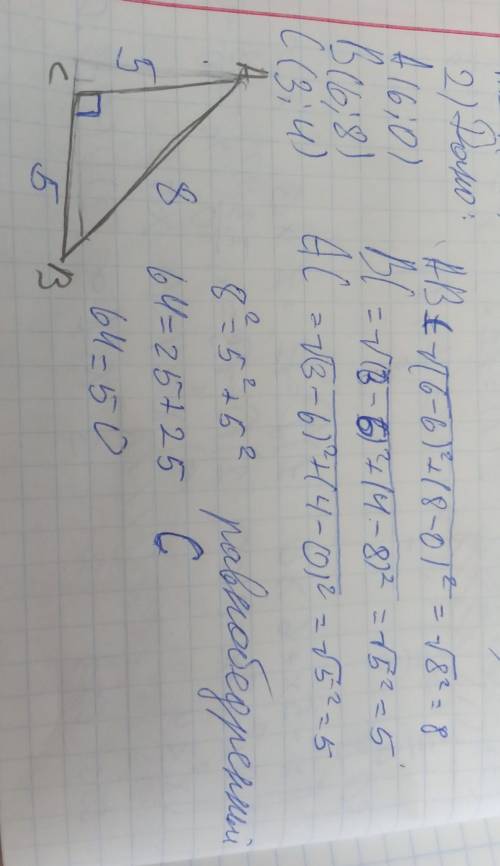 2) Дано:
A(6;0)
B(6;8)
C(3;4)
AB = √(6-6)²+(8-0)² = √8² = 8
BC = √(3-6)²+(4-8)² = √5² = 5
AC = √(3-6)²+(4-0)² = √5² = 5
A
5
8
C
5
B
8² = 5² + 5²
64 = 25 + 25
64 = 50
равнобедренный